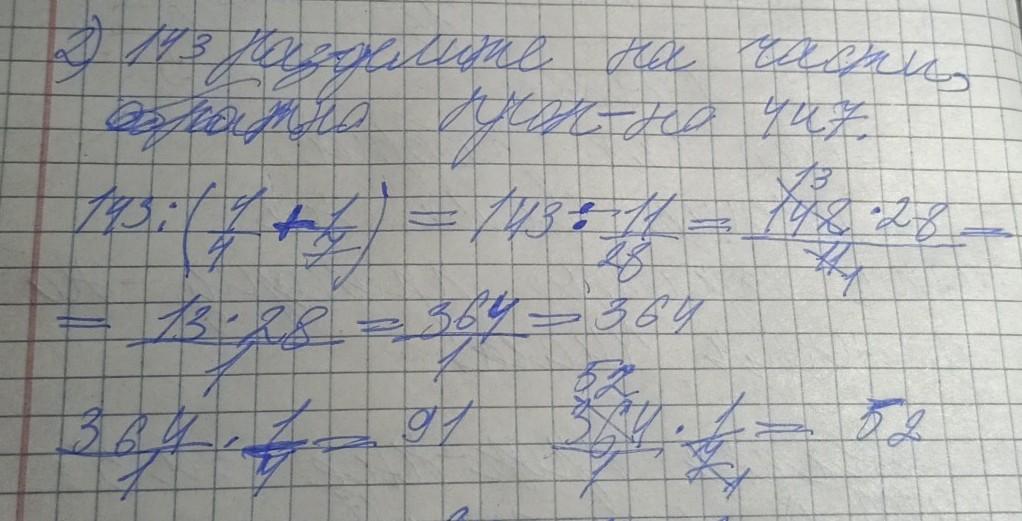 2) 143 разделите на части,
обратно проп-но 4 и 7.
143 : (1/4 + 1/7) = 143 : 11/28 = 143 · 28 / 11 =
= 13 · 28 / 1 = 364/1 = 364
364/1 · 1/4 = 91 364/1 · 1/7 = 52